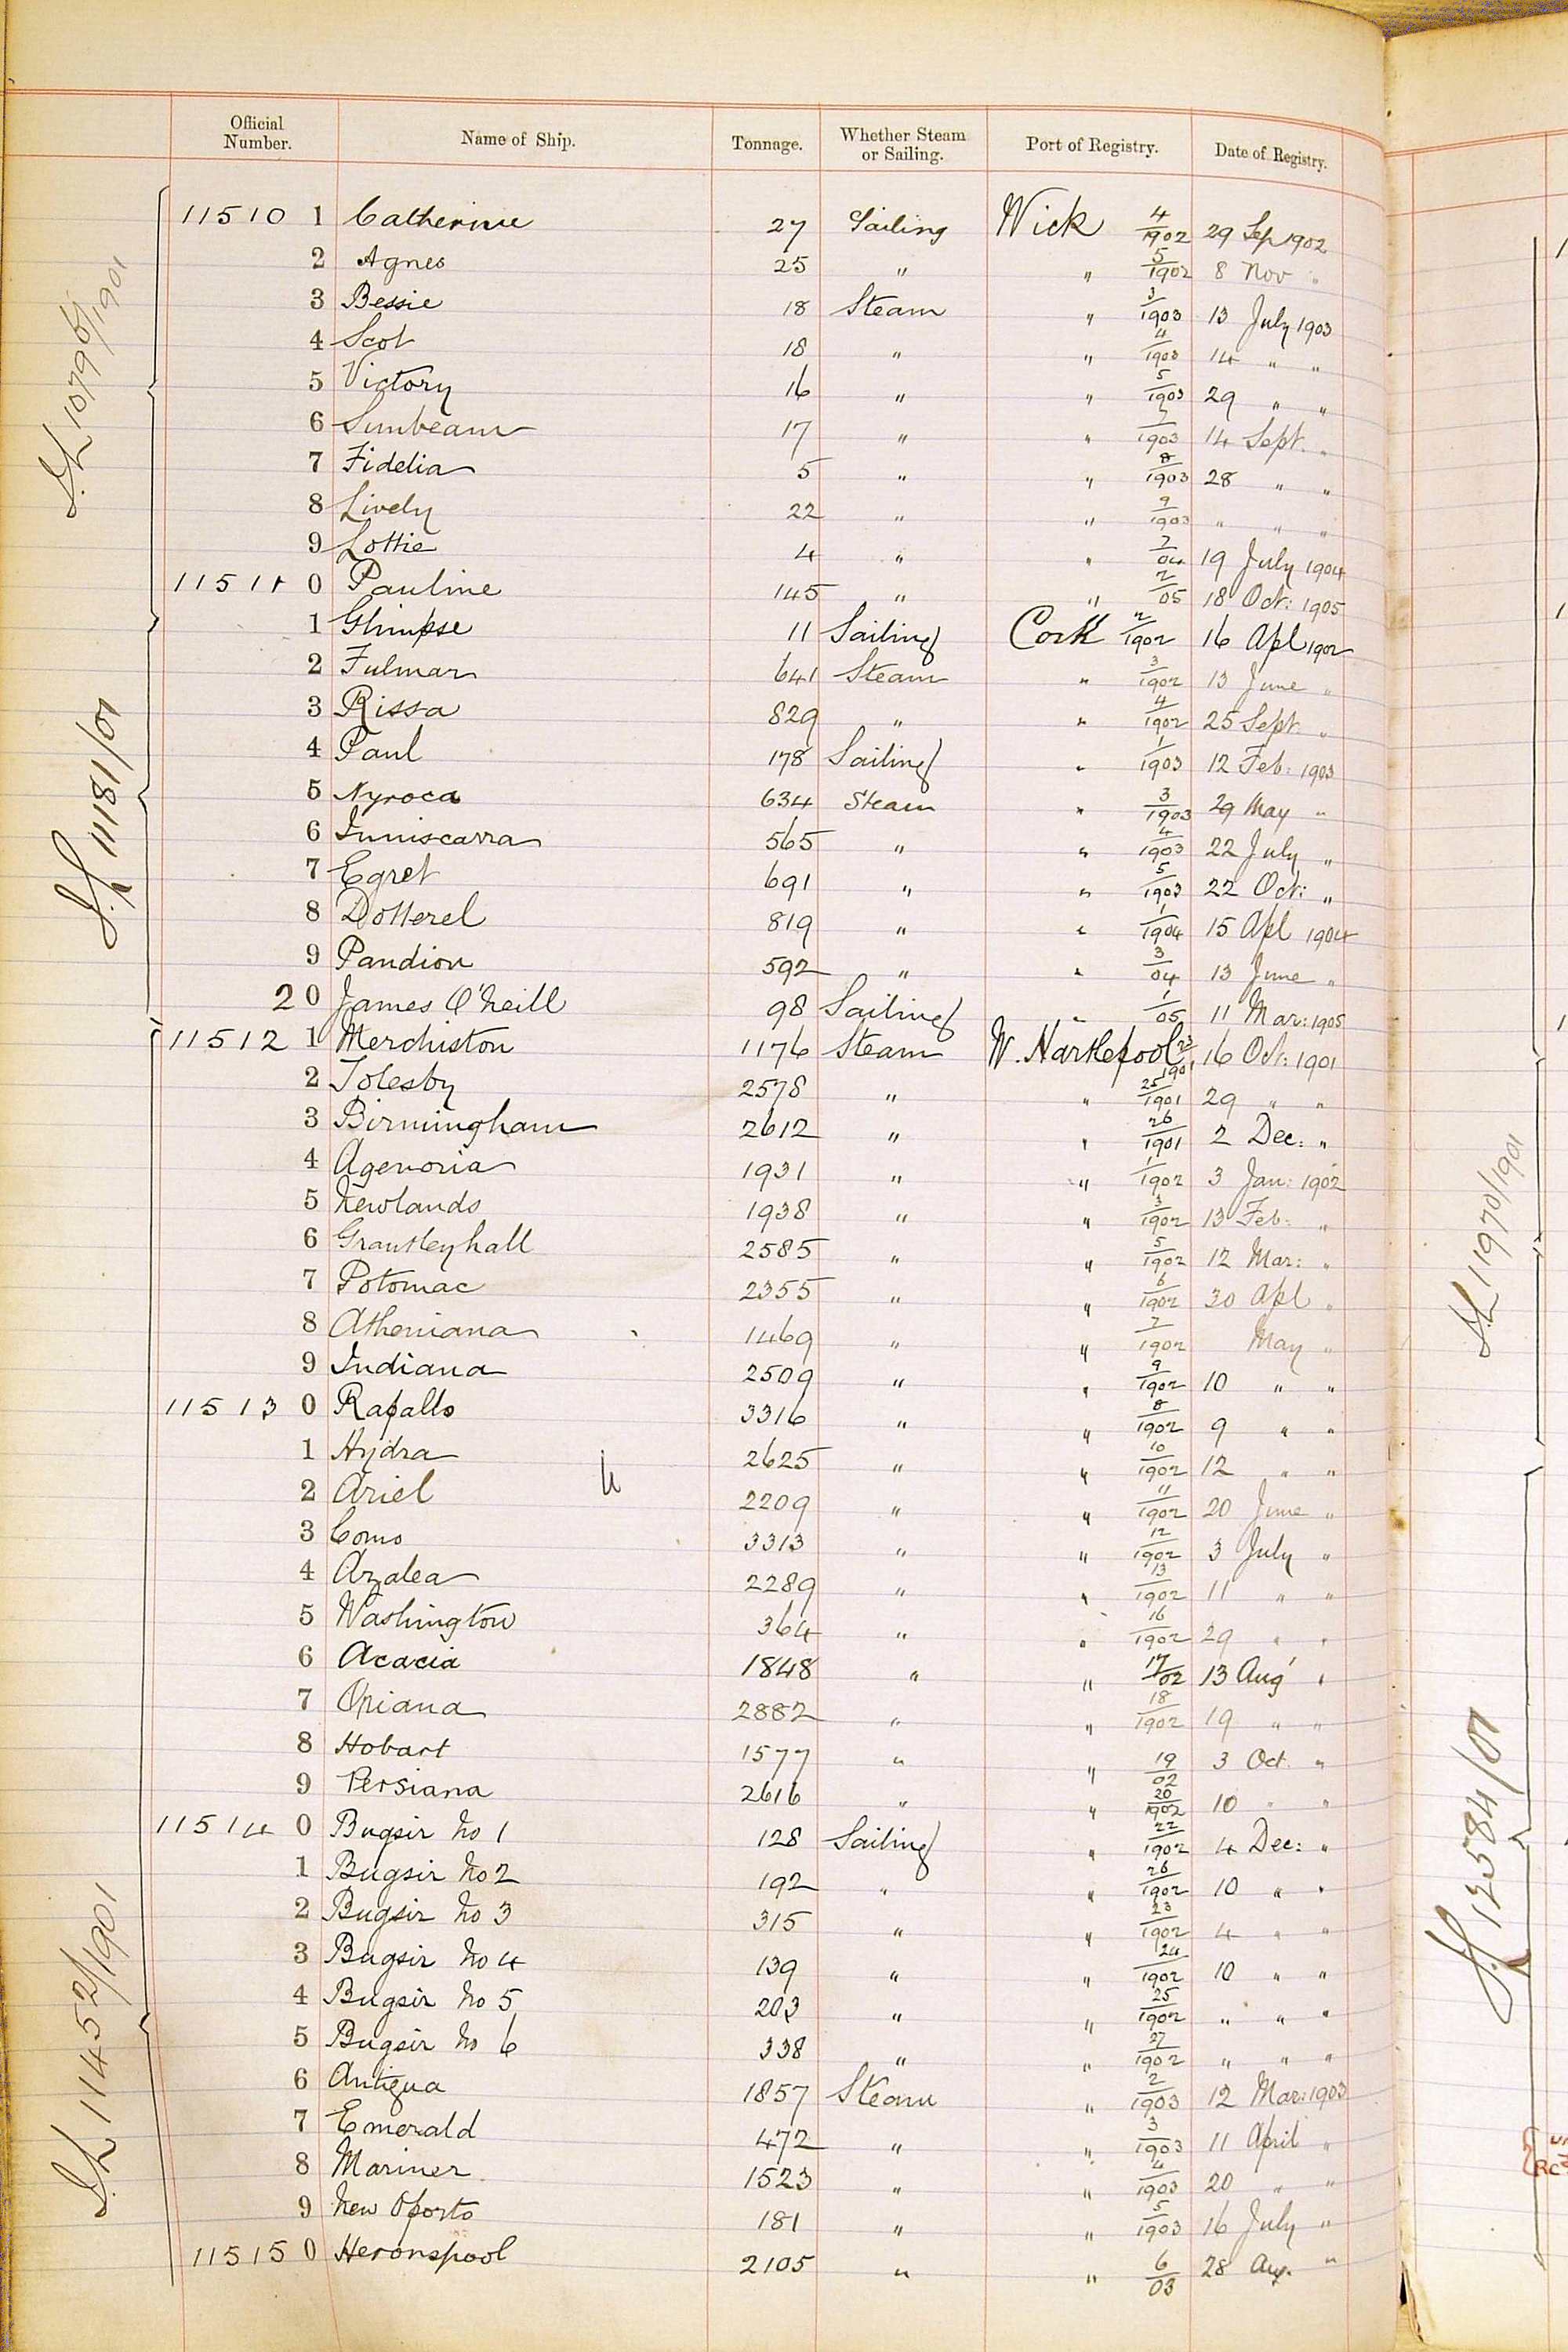 Official Number. Name of Ship. Tonnage. Whether Steam or Sailing. Port of Registry. Date of Registry.
11510 1 Catherine 27 Sailing Wick 4/1902 29 Sep 1902
2 Agnes 25 " " 5/1902 8 Nov "
3 Bessie 18 Steam " 3/1903 13 July 1903
4 Scot 18 " " 4/1903 14 " "
5 Victory 16 " " 5/1903 29 " "
6 Sunbeam 17 " " 7/1903 14 Sept. "
7 Fidelia 5 " " 8/1903 28 " "
8 Lively 22 " " 9/1903 " " "
9 Lottie 4 " " 7/04 19 July 1904
11511 0 Pauline 145 " " 2/05 18 Oct: 1905
1 Glimpse 11 Sailing Cork 2/1902 16 Apl 1902
2 Fulmar 641 Steam " 3/1902 13 June "
3 Rissa 829 " " 4/1902 25 Sept. "
4 Paul 178 Sailing " 1/1903 12 Feb: 1903
5 Nyroca 634 Steam " 3/1903 29 May "
6 Inniscarra 565 " " 4/1903 22 July "
7 Egret 691 " " 5/1903 22 Oct: "
8 Dotterel 819 " " 1/1904 15 Apl 1904
9 Pandion 592 " " 3/04 13 June "
20 James O'Neill 98 Sailing " 1/05 11 Mar: 1905
11512 1 Merchiston 1176 Steam W. Hartlepool 23/1901 16 Oct: 1901
2 Tolesby 2578 " " 25/1901 29 " "
3 Birmingham 2612 " " 26/1901 2 Dec: "
4 Agenoria 1931 " " 1/1902 3 Jan: 1902
5 Newlands 1938 " " 3/1902 13 Feb: "
6 Grantleyhall 2585 " " 5/1902 12 Mar: "
7 Potomac 2355 " " 6/1902 30 Apl "
8 Atheniana 1469 " " 7/1902 May "
9 Indiana 2509 " " 9/1902 10 " "
11513 0 Rapallo 3316 " " 8/1902 9 " "
1 Hydra 2625 " " 10/1902 12 " "
2 Ariel 2209 " " 11/1902 20 June "
3 Como 3313 " " 12/1902 3 July "
4 Azalea 2289 " " 13/1902 11 " "
5 Washington 364 " " 16/1902 29 " "
6 Acacia 1848 " " 17/02 13 Aug "
7 Oriana 2882 " " 18/1902 19 " "
8 Hobart 1577 " " 19/02 3 Oct. "
9 Persiana 2616 " " 20/1902 10 " "
11514 0 Bugsir No 1 128 Sailing " 22/1902 4 Dec: "
1 Bugsir No 2 192 " " 26/1902 10 " "
2 Bugsir No 3 315 " " 23/1902 4 " "
3 Bugsir No 4 139 " " 24/1902 10 " "
4 Bugsir No 5 203 " " 25/1902 " " "
5 Bugsir No 6 338 " " 27/1902 " " "
6 Antigua 1857 Steam " 2/1903 12 Mar: 1903
7 Emerald 472 " " 3/1903 11 April "
8 Mariner 1523 " " 4/1903 20 " "
9 New Oporto 181 " " 5/1903 16 July "
11515 0 Heronspool 2105 " " 6/03 28 Aug. "
11181/01
11452/1901
11970/1901
12584/01